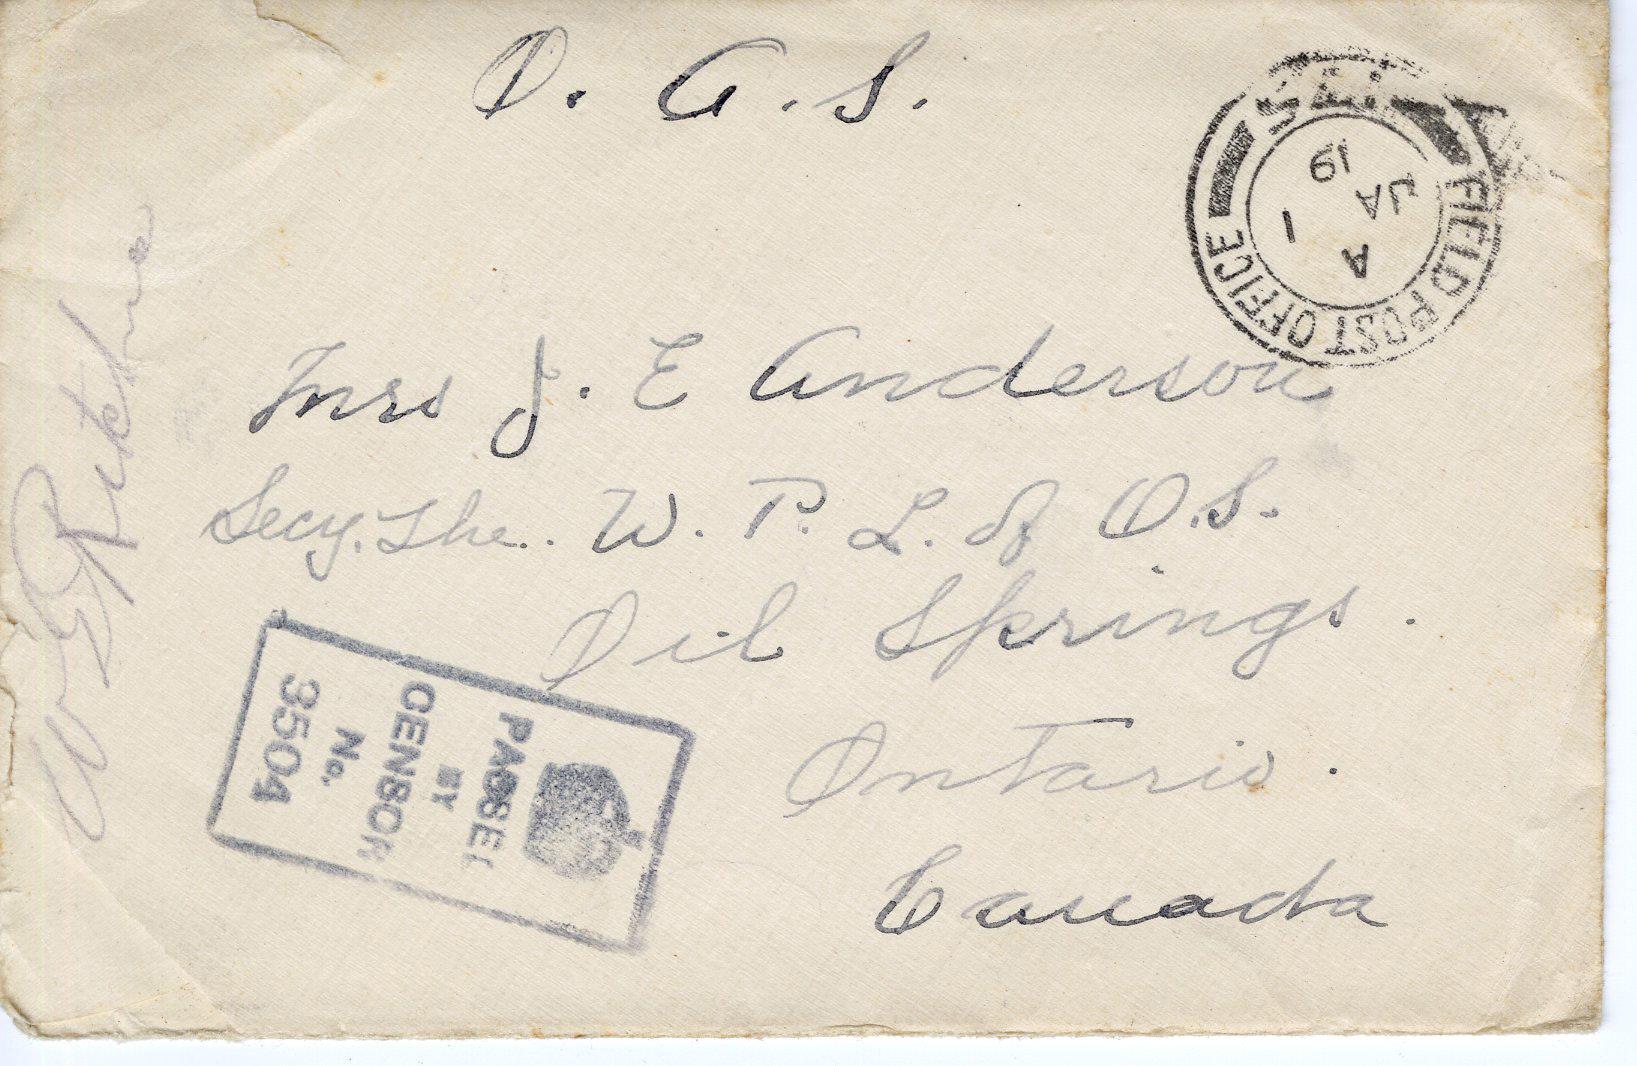 O. A. S.
FIELD POST OFFICE
A
1
JA
19
Mrs J. E Anderson
Secy. The.. W. P. L. of O.S.
Oil Springs.
Ontario.
Canada
PASSED
BY
CENSOR
No.
3504